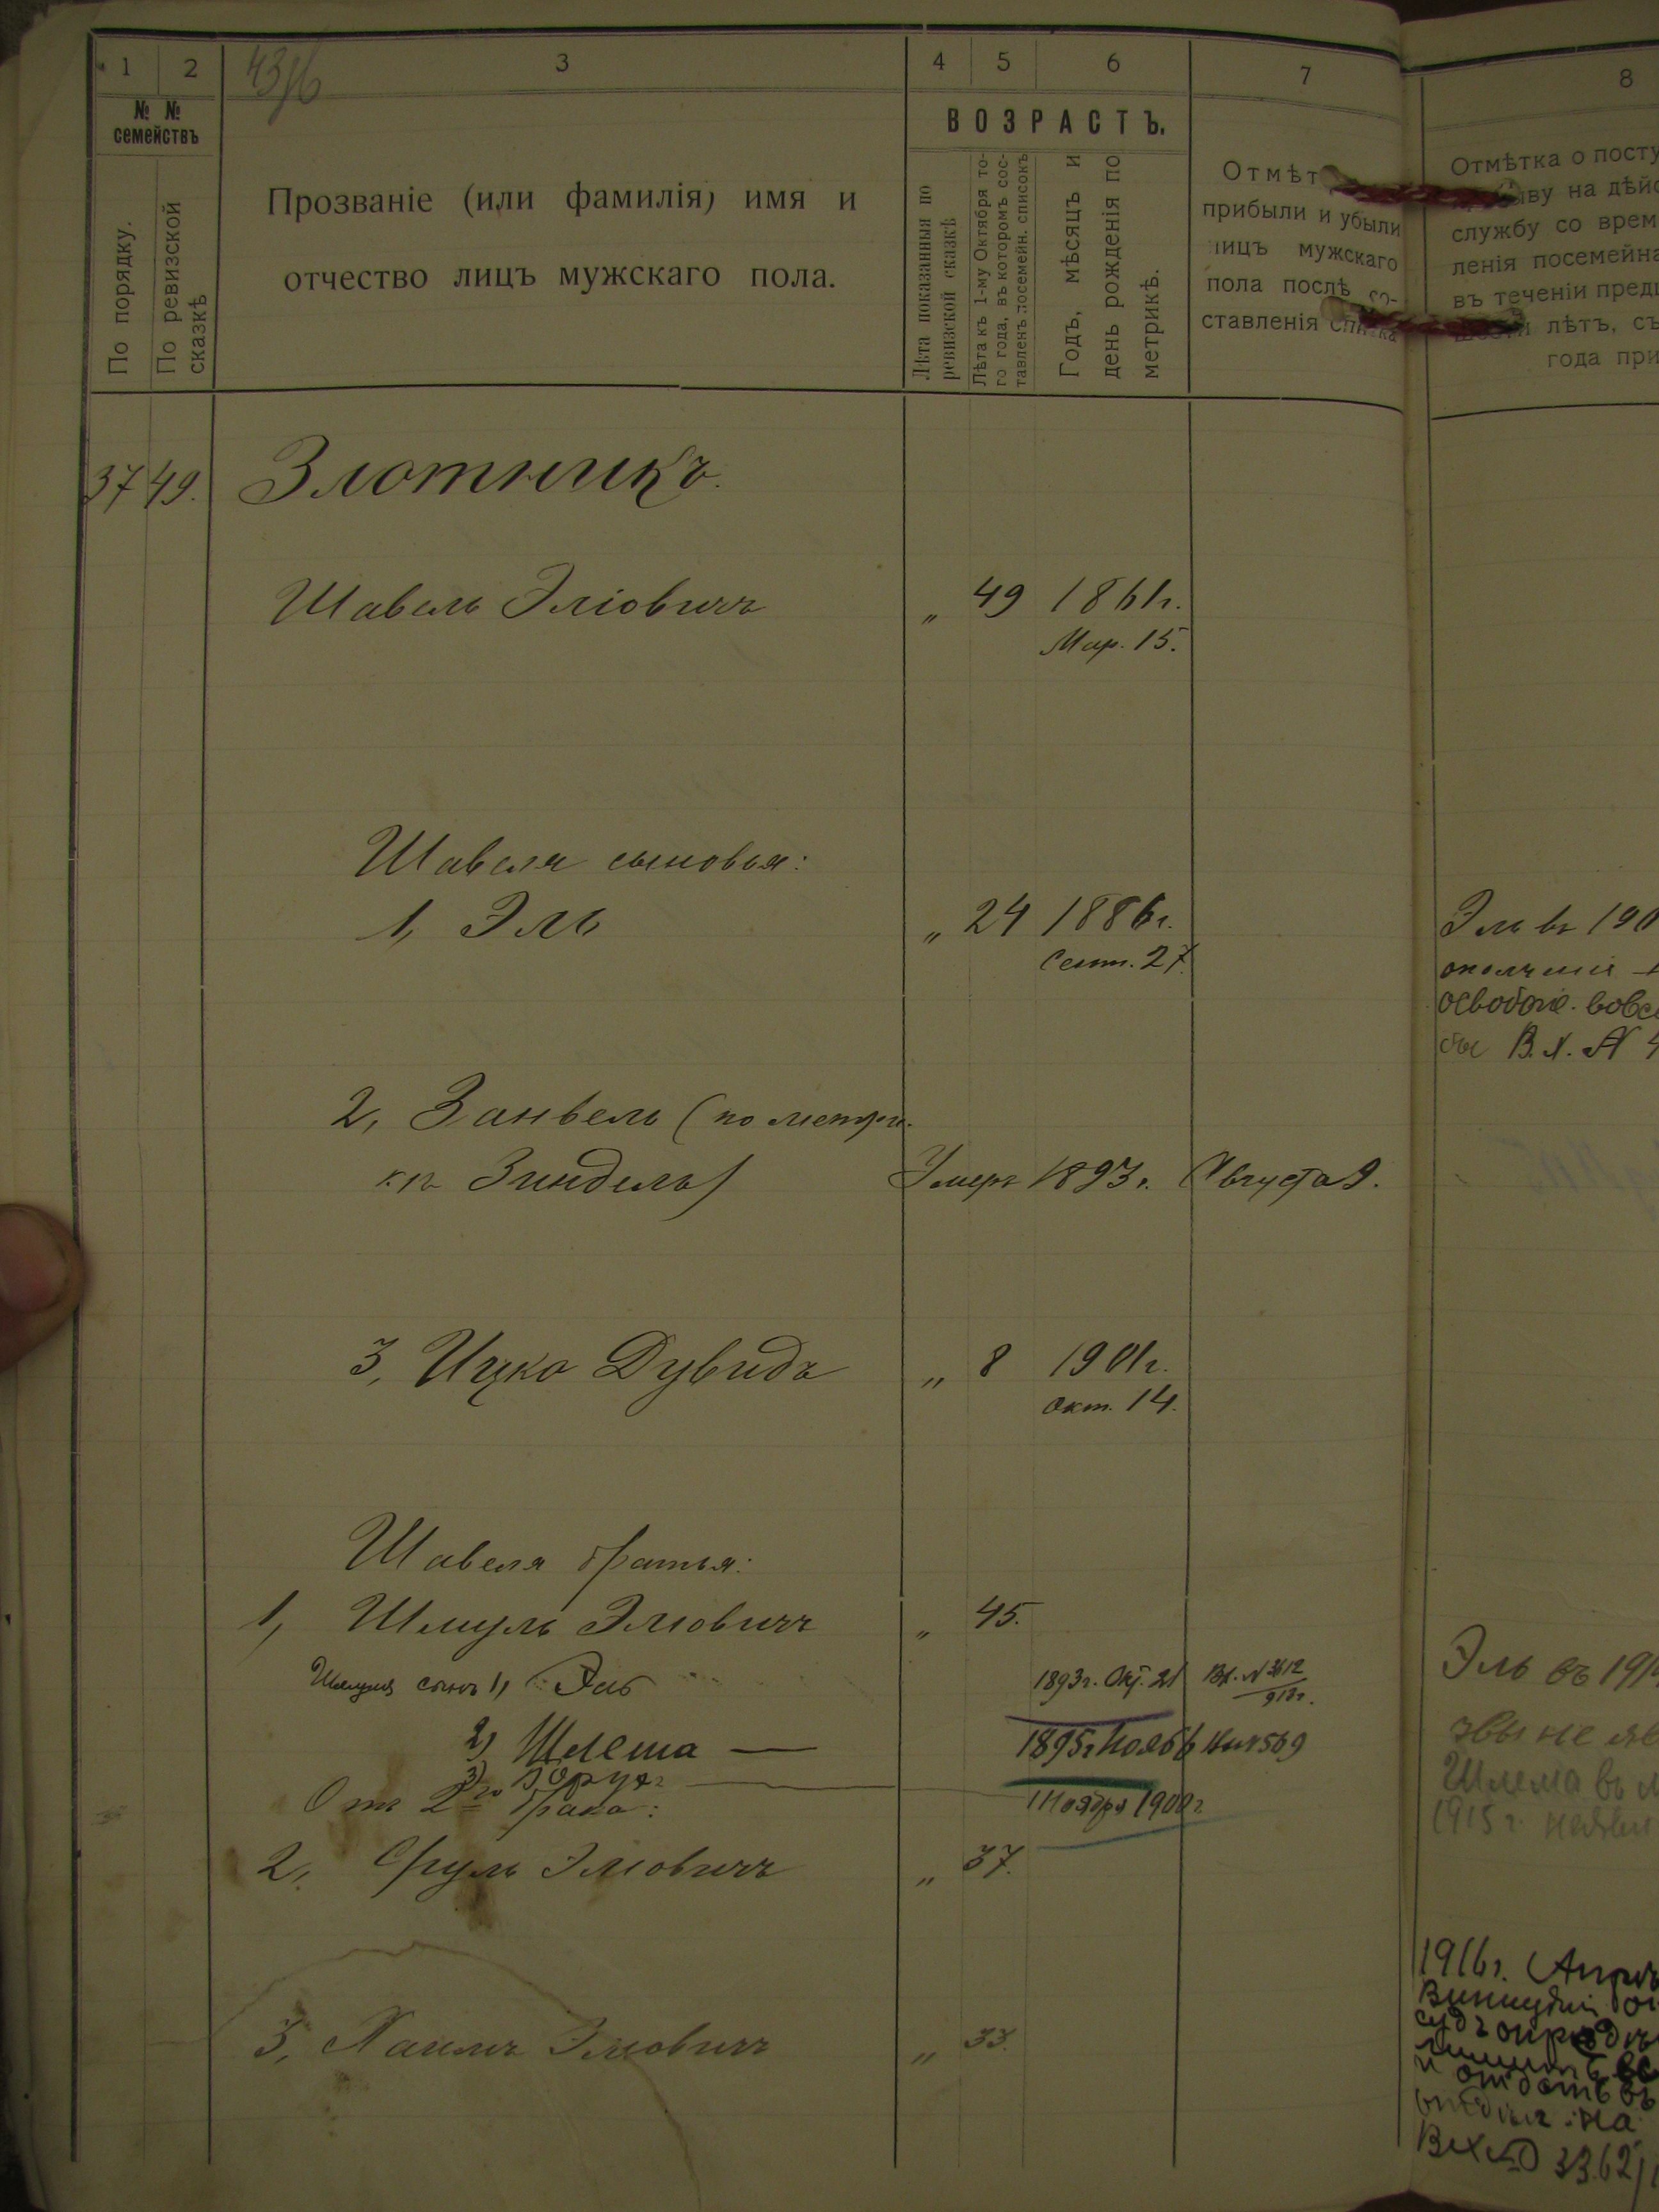 1 2 43/6 3 4 5 6 7 8
№ №
семействъ
По порядку.
По ревизской
сказкѣ
Прозваніе (или фамилія) имя и
отчество лицъ мужскаго пола.
ВОЗРАСТЪ.
Лѣта показанныя по
ревизской сказкѣ
Лѣта къ 1-му Октября то-
го года, въ которомъ сос-
тавленъ посемейн. списокъ
Годъ, мѣсяцъ и
день рожденія по
метрикѣ.
Отмѣт
прибыли и убыли
лицъ мужскаго
пола послѣ со-
ставленія списка
Отмѣтка о посту
ыву на дѣйс
службу со врем
ленія посемейна
въ теченіи пред
лѣтъ, съ
года при
37 49. Злотникъ.
Шавель Эліовичъ „ 49 1861г.
Мар. 15.
Шавеля сыновья:
1, Эль „ 24 1886г.
Сент. 27.
Эль въ 190
ополченіе
освобож. вовсе
В. Л. №
2, Занвель (по метри-
кѣ Зиндель) Умеръ 1893г. Августа 9.
3, Ицко Дувидъ „ 8 1901г.
Окт. 14.
Шавеля братья:
1, Шмуль Эліовичъ „ 45.
Шмуля сынъ 1, Эль 1893г. Окт. 21 Вх. № 3612
913г.
Эль въ 191
2) Шлема — 1895г Нояб 6 569
3) Борухъ — 1 Ноября 1900г.
Отъ 2го брака:
Шлема въ
1915г. неявил
2, Сруль Эліовичъ „ 37.
3, Хаимъ Эліовичъ „ 33.
1916г. Апрѣ
судъ опредѣл
и отдать въ
на
Вх № 3362/